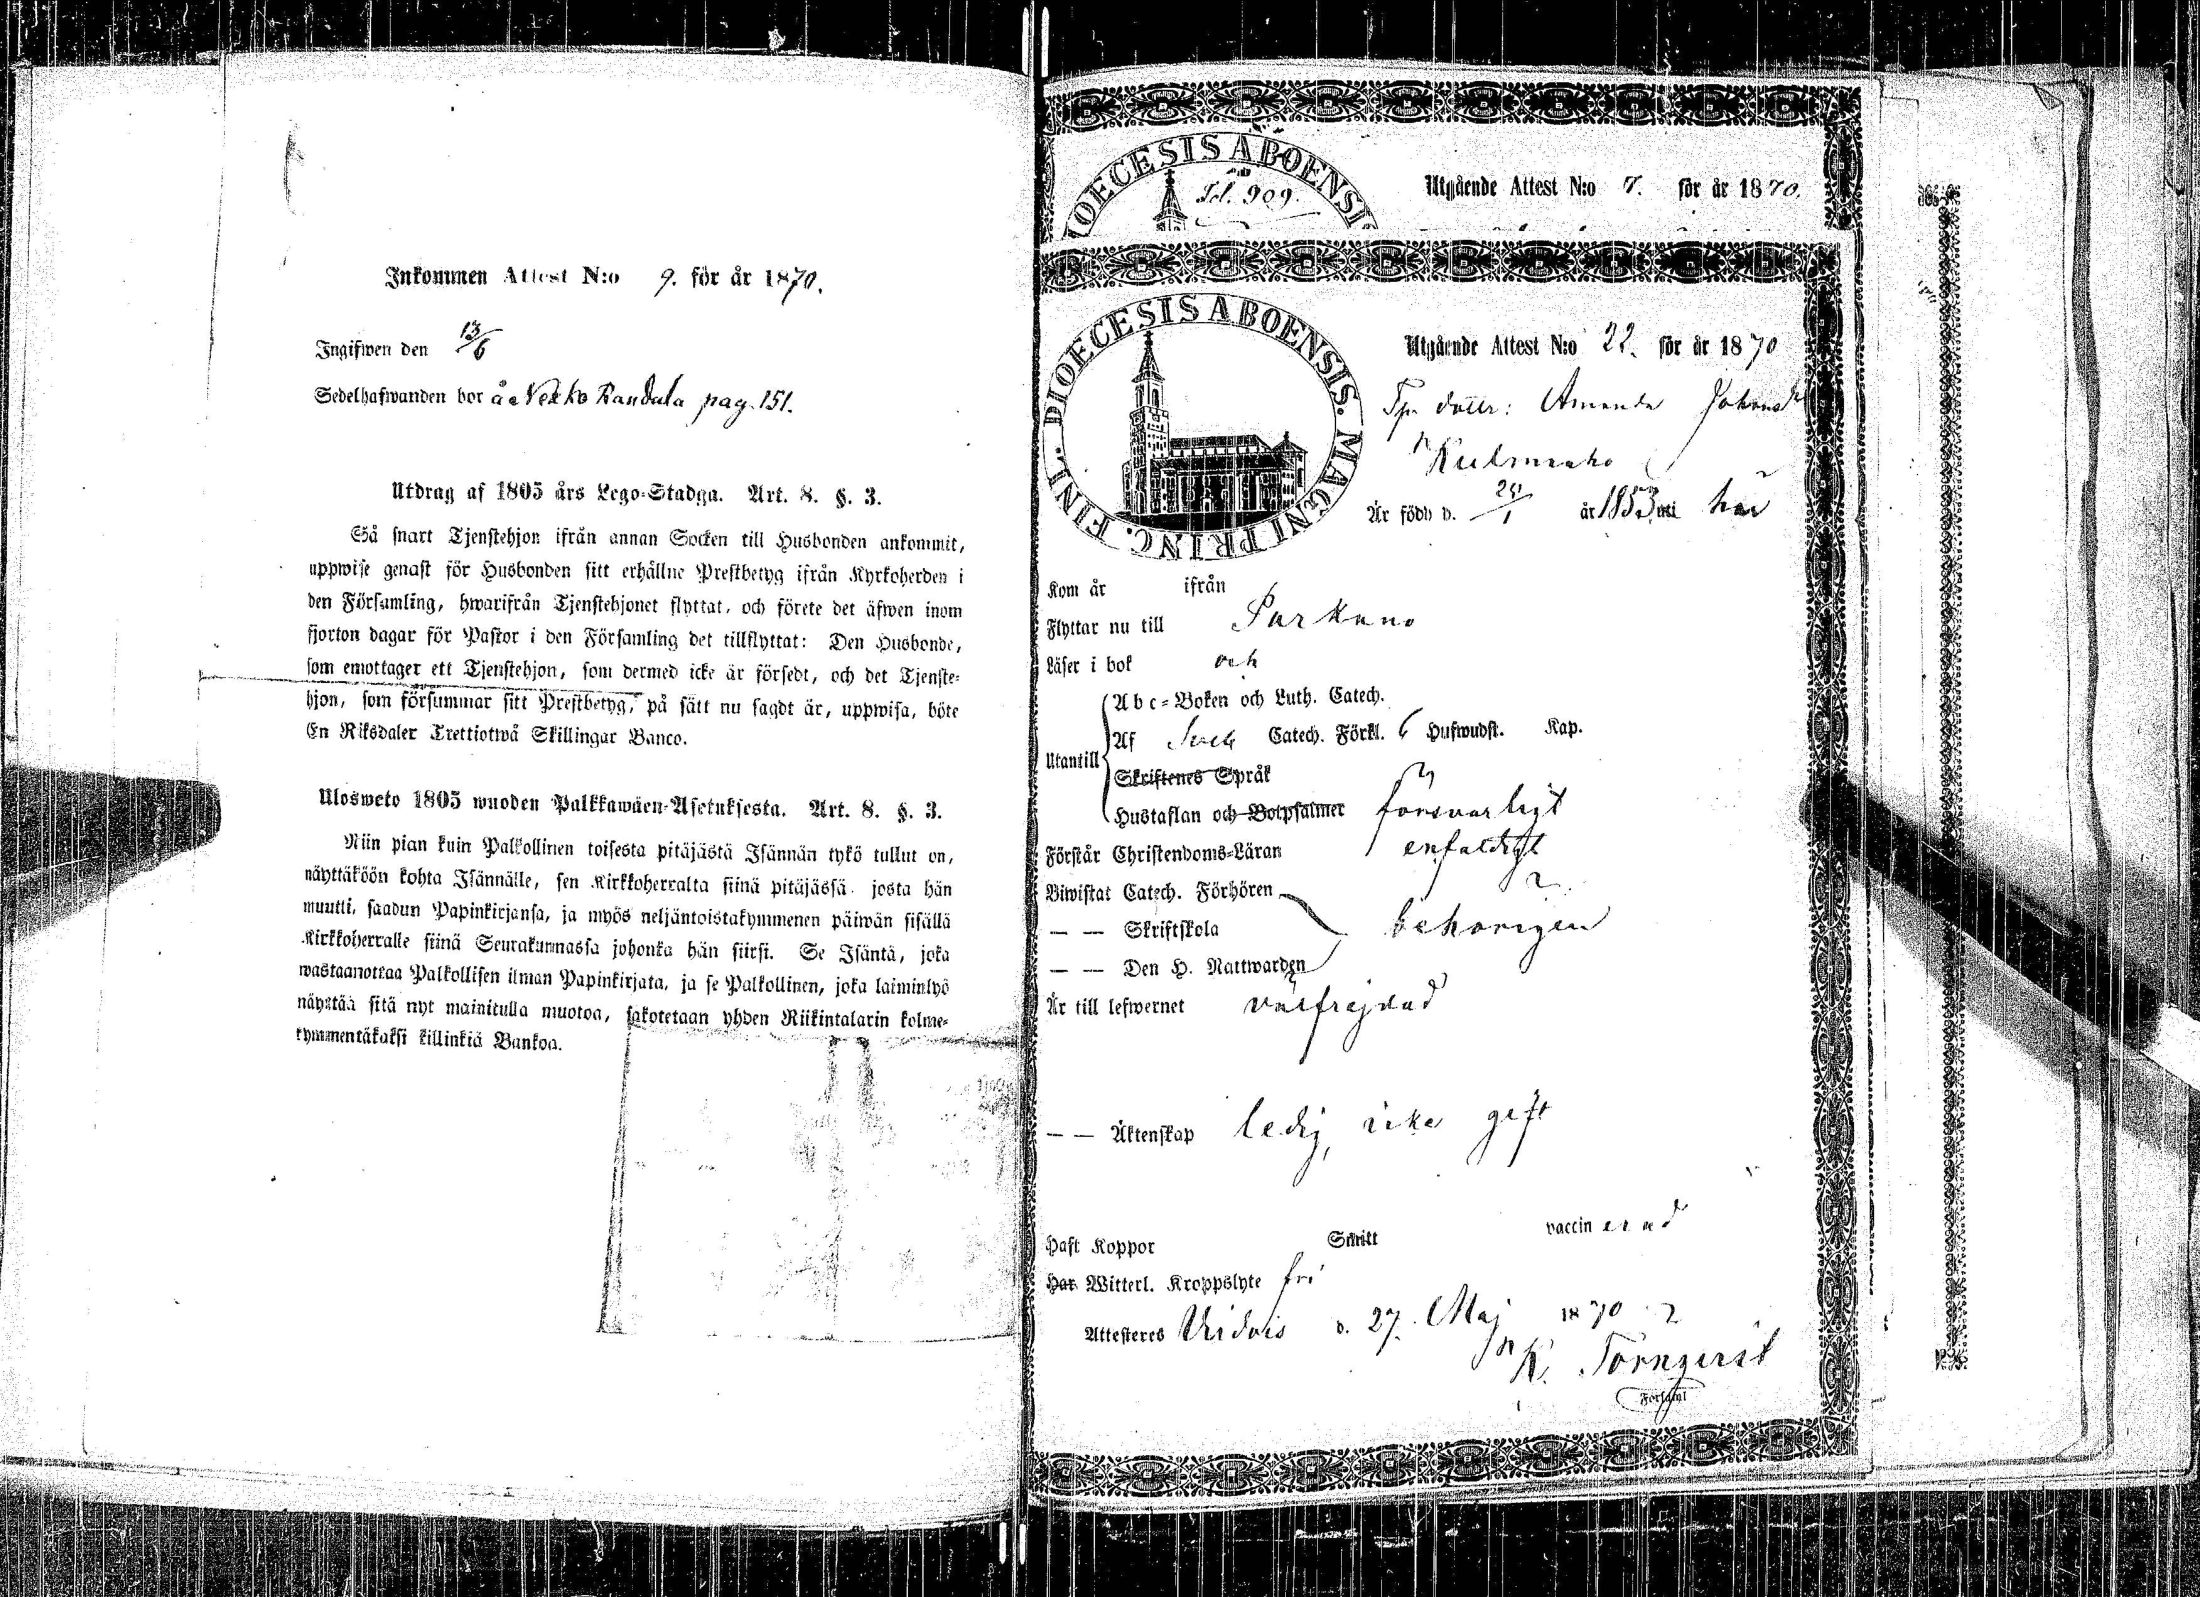 Inkommen Attest N:o 9. för år 1870.
Ingifwen den 13/6
Sedelhafwanden bor å Randala pag. 151.
Utdrag af 1805 års Lego-Stadga. Art. 8. §. 3.
Så snart Tjenstehjon ifrån annan Socken till Husbonden ankommit,
uppwise genast för Husbonden sitt erhållne Prestbetyg ifrån Kyrkoherden i
den Församling, hwarifrån Tjenstehjonet flyttat, och förete det äfwen inom
fjorton dagar för Pastor i den Församling det tillflyttat: Den Husbonde,
som emottager ett Tjenstehjon, som dermed icke är försedt, och det Tjenste-
hjon, som försummar sitt Prestbetyg, på sätt nu sagdt är, uppwisa, böte
En Riksdaler Trettiotwå Skillingar Banco.
Ulosweto 1805 wuoden Palkkawäen-Asetuksesta. Art. 8. §. 3.
Niin pian kuin Palkollinen toisesta pitäjästä Isännän tykö tullut on,
näyttäköön kohta Isännälle, sen Kirkkoherralta siinä pitäjässä josta hän
muutti, saadun Papinkirjansa, ja myös neljäntoistakymmenen päiwän sisällä
Kirkkoherralle siinä Seurakunnassa johonka hän siirsi. Se Isäntä, joka
wastaanottaa Palkollisen ilman Papinkirjata, ja se Palkollinen, joka laiminlyö
näyttää sitä nyt mainitulla muotoa, sakotetaan yhden Riikintalarin kolme-
kymmentäkaksi killinkiä Bankoa.
DIOECESIS ABOENSI
Fol. 909.
Utgående Attest N:o 7. för år 1870.
DIOECESIS ABOENSIS. MAGNI PRINC. FINL.
Utgående Attest N:o 22. för år 1870
dottr: Amanda Johansdr
Kulmanko
Är född d. 24/1 år 1853 uti här
Kom år ifrån
Flyttar nu till Parkano
Läser i bok och
Utantill
Abc-Boken och Luth. Catech.
Af Sveb Catech. Förkl. 6 Hufwudst. Kap.
Skriftenes Språk
Hustaflan och Botpsalmer försvarligt
Förstår Christendoms-Läran enfaldigt
Biwistat Catech. Förhören
— — Skriftskola behörigen
— — Den H. Nattwarden
Är till lefwernet välfrejdad
— — Äktenskap ledig, icke gift
Haft Koppor Skritt vaccinerad
Har Witterl. Kroppslyte fri
Attesteres d. 27. Maj 1870
K. Törnqvist
Församl